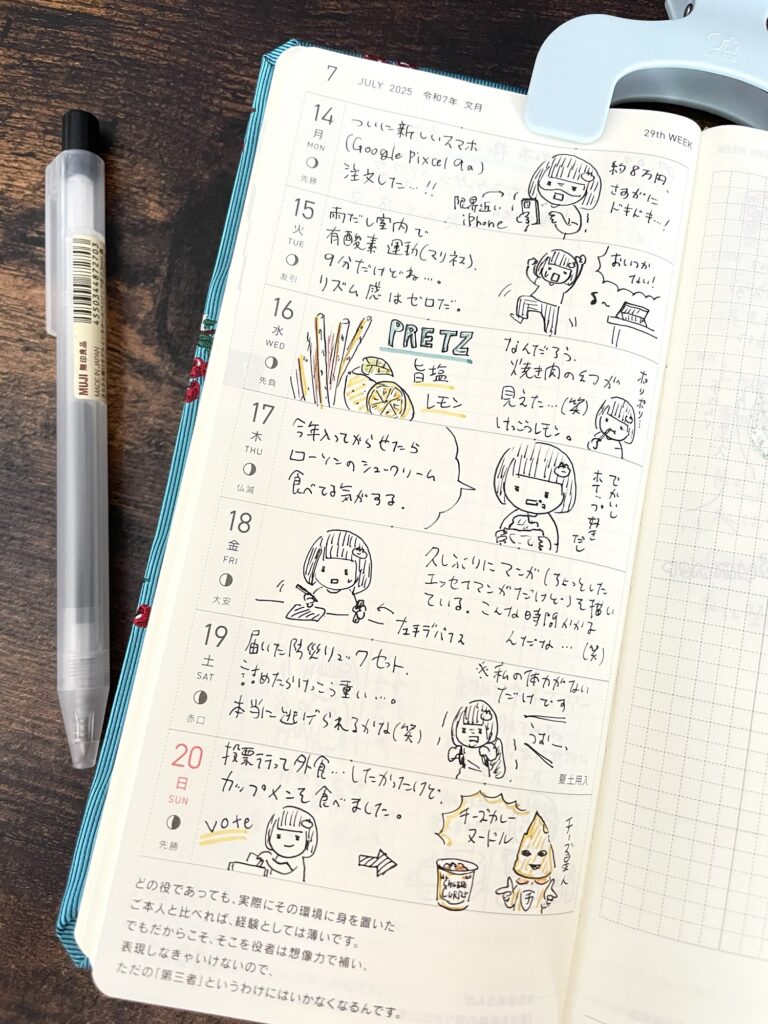 7
JULY 2025 令和7年 文月
29th WEEK
14
月
MON
先勝
ついに新しいスマホ
(Google Pixcel 9a)
注文した…!!
限界近い
iPhone
約8万円、
さすがに
ドキドキ…!
15
火
TUE
友引
雨だし室内で
有酸素運動(マリネス).
9分だけどね…。
リズム感はゼロだ。
おいつか
ない!
16
水
WED
先負
PRETZ
旨塩
レモン
なんだろう.
焼き肉の幻が
見えた…(笑)
けっこうレモン。
ポリポリ…
17
木
THU
仏滅
今年入ってからせたら
ローソンのシュークリーム
食べてる気がする.
でかいし
ホイップ好き
だし
18
金
FRI
大安
左手デバイス
久しぶりにマンガ(ちょっとした
エッセイマンガだけど)を描い
ている。こんな時間かかる
んだな…(笑)
19
土
SAT
赤口
届いた防災リュックセット.
詰めたらけっこう重い…。
本当に逃げられるかな(笑)
※私の体力がない
だけです
夏土用入
20
日
SUN
先勝
投票行って外食…したかったけど、
カップメンを食べました。
vote
チーズカレー
ヌードル
チーズ星人
どの役であっても、実際にその環境に身を置いた
ご本人と比べれば、経験としては薄いです。
でもだからこそ、そこを役者は想像力で補い、
表現しなきゃいけないので、
ただの「第三者」というわけにはいかなくなるんです。
4550344872703
MUJI 無印良品
MADE IN JAPAN